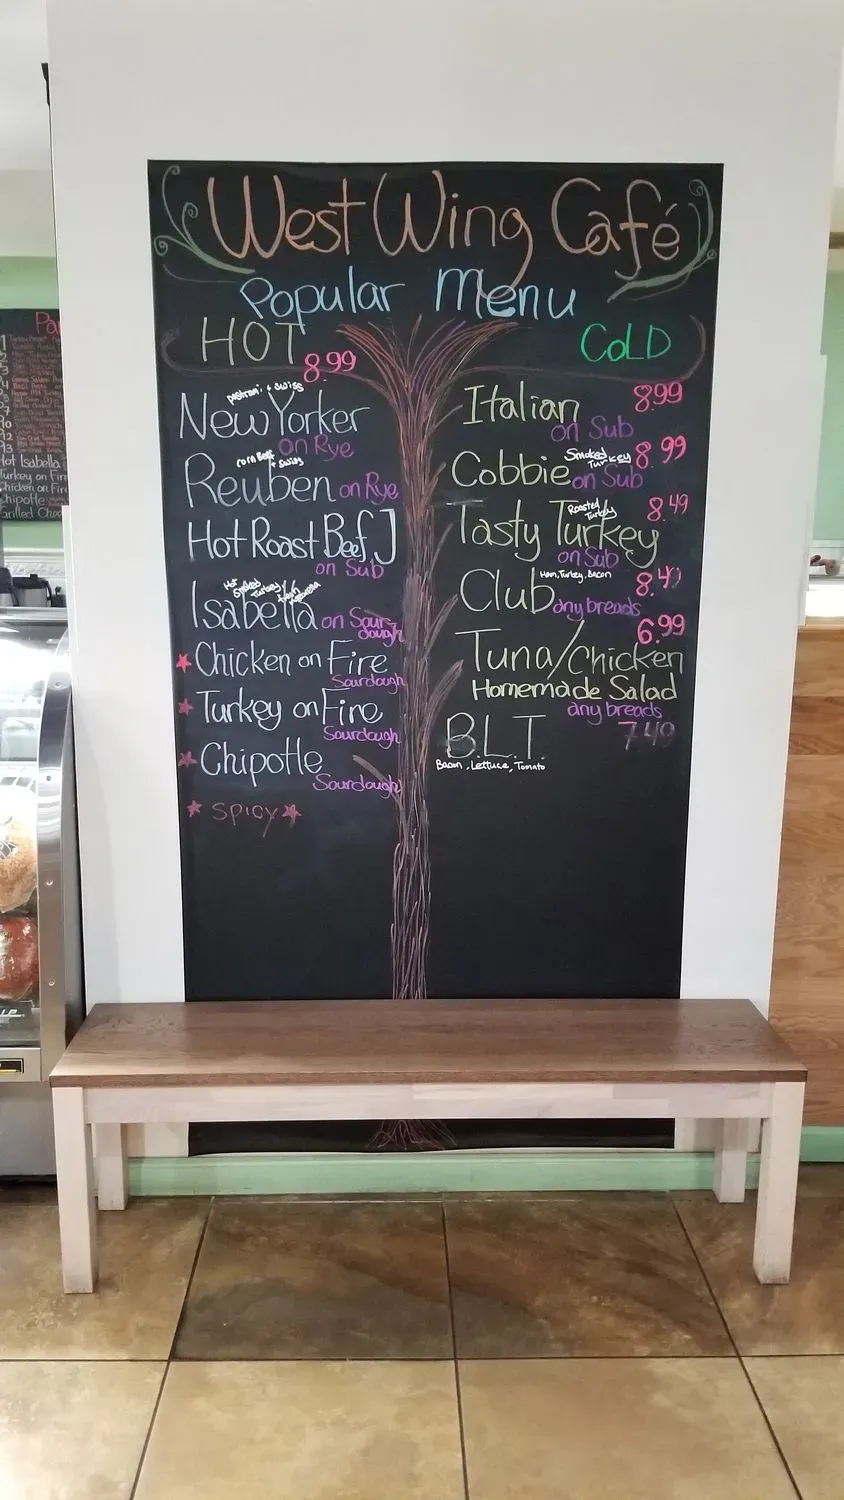 West Wing Café
Popular Menu
HOT 8.99
pastrami + swiss
New Yorker
on Rye
corn Beef + Swiss
Reuben on Rye
Hot Roast Beef
on Sub
Hot Smoked Turkey
Isabella on Sour-
dough
★ Chicken on Fire
Sourdough
★ Turkey on Fire
Sourdough
★ Chipotle
Sourdough
★ SPICY ★
COLD
Italian 8.99
on Sub
Smoked Turkey
Cobbie on Sub 8.99
Roasted Turkey
Tasty Turkey 8.49
on Sub
Ham, Turkey, Bacon
Club any breads
6.99
Tuna/Chicken
Homemade Salad
any breads
7.49
B.L.T.
Bacon, Lettuce, Tomato
Hot Isabella
Turkey on Fir
Chicken on Fir
Chipotle